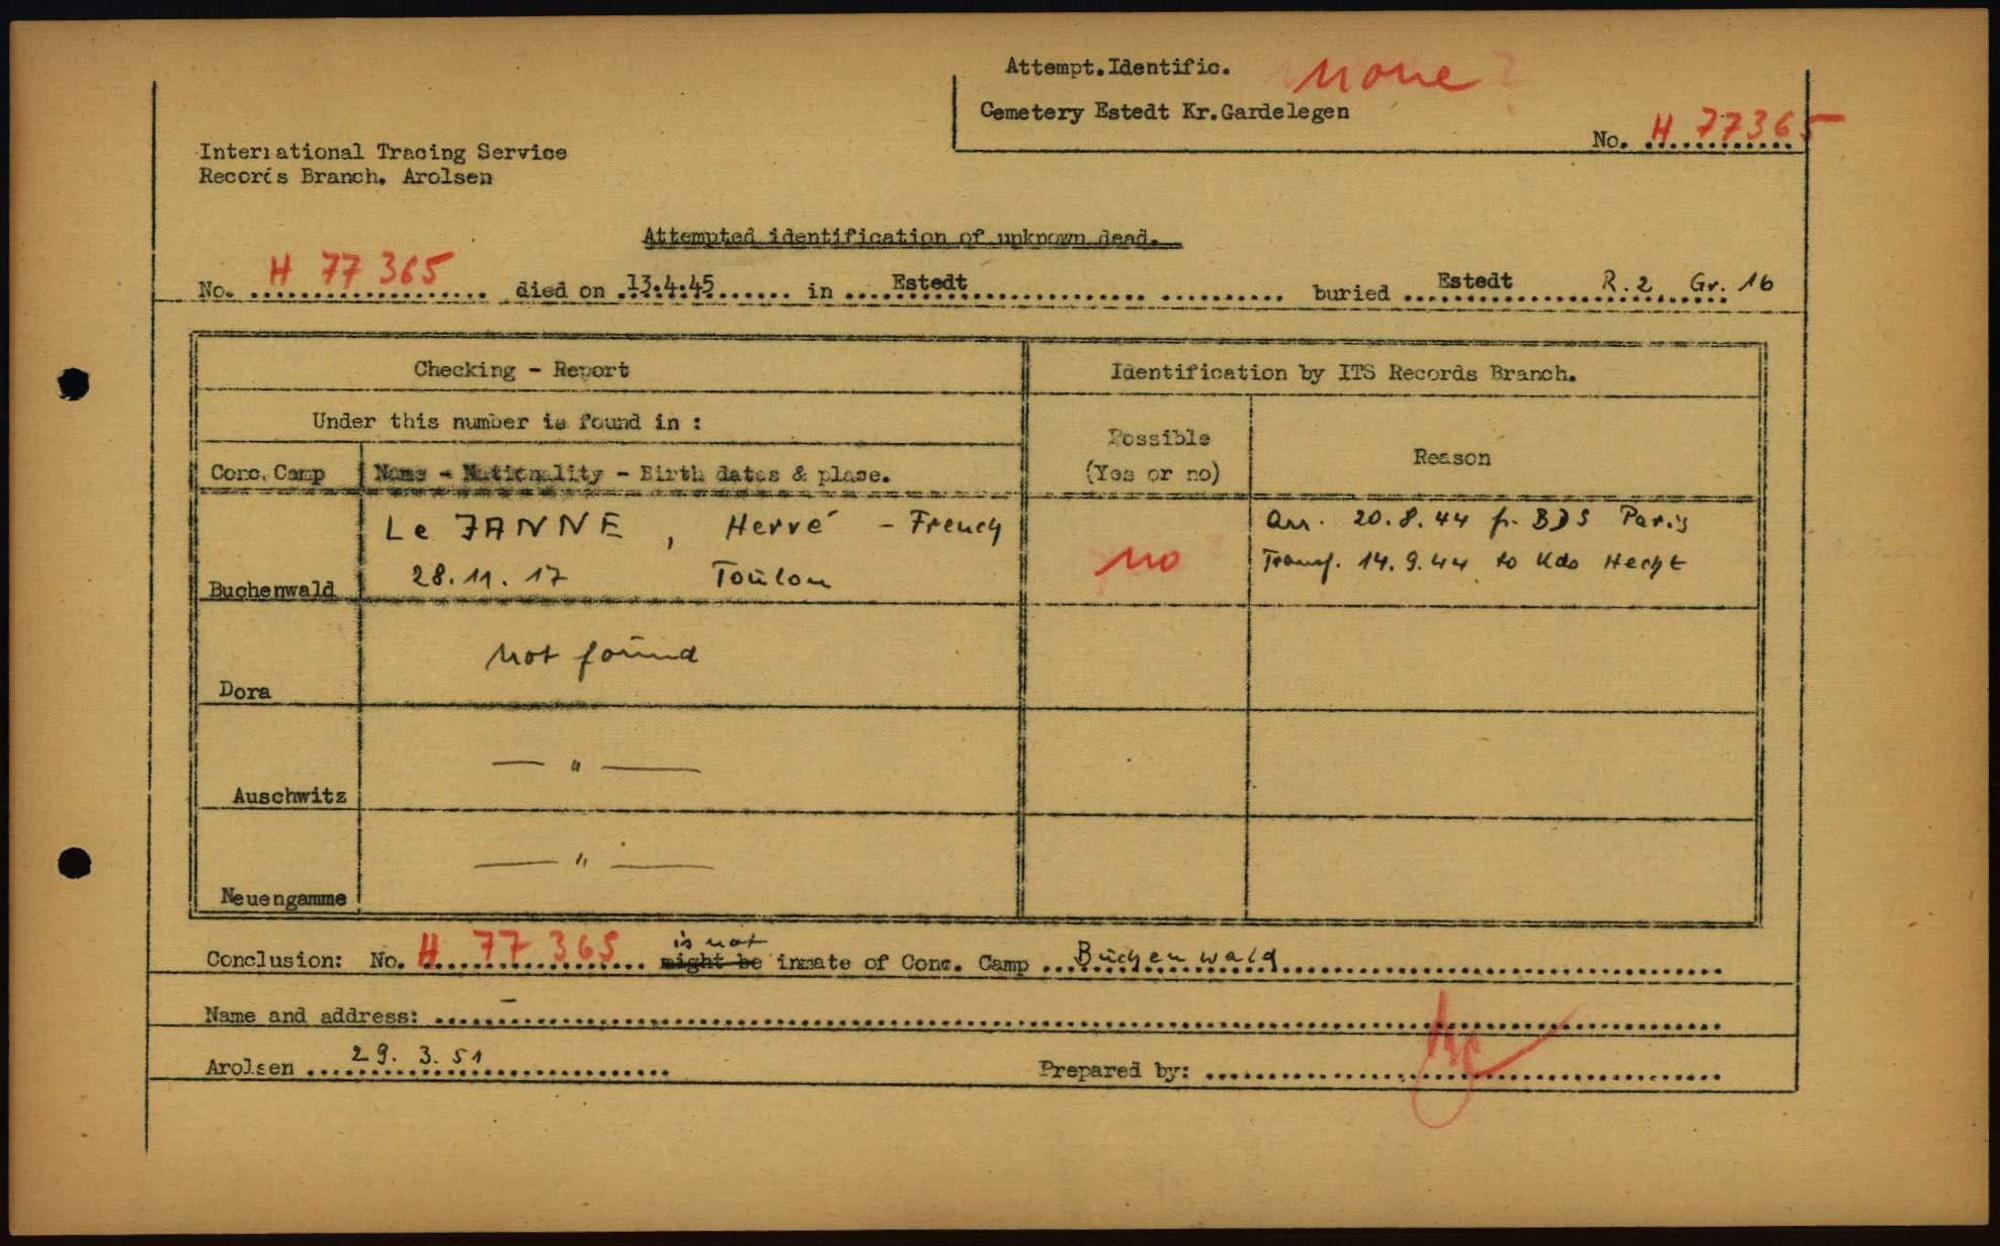 Attempt.Identific. none
Cemetery Estedt Kr.Gardelegen
No. H 77365
International Tracing Service
Records Branch. Arolsen
Attempted identification of unknown dead.
No. H 77 365 died on 13.4.45 in Estedt buried Estedt R.2 Gr. 16
Checking - Report
Identification by ITS Records Branch.
Under this number is found in :
Possible
(Yes or no)
Reason
Conc. Camp
Name - Nationality - Birth dates & plase.
Le JANNE, Hervé - French
28.11.17 Toulon
Buchenwald
no
Arr. 20.8.44 fr. BDS Paris
Transf. 14.9.44 to Kdo Hecht
not found
Dora
— " —
Auschwitz
— " —
Neuengamme
Conclusion: No. H 77 365 might be is not inmate of Conc. Camp Buchenwald
Name and address: –
Arolsen 29. 3. 51
Prepared by: